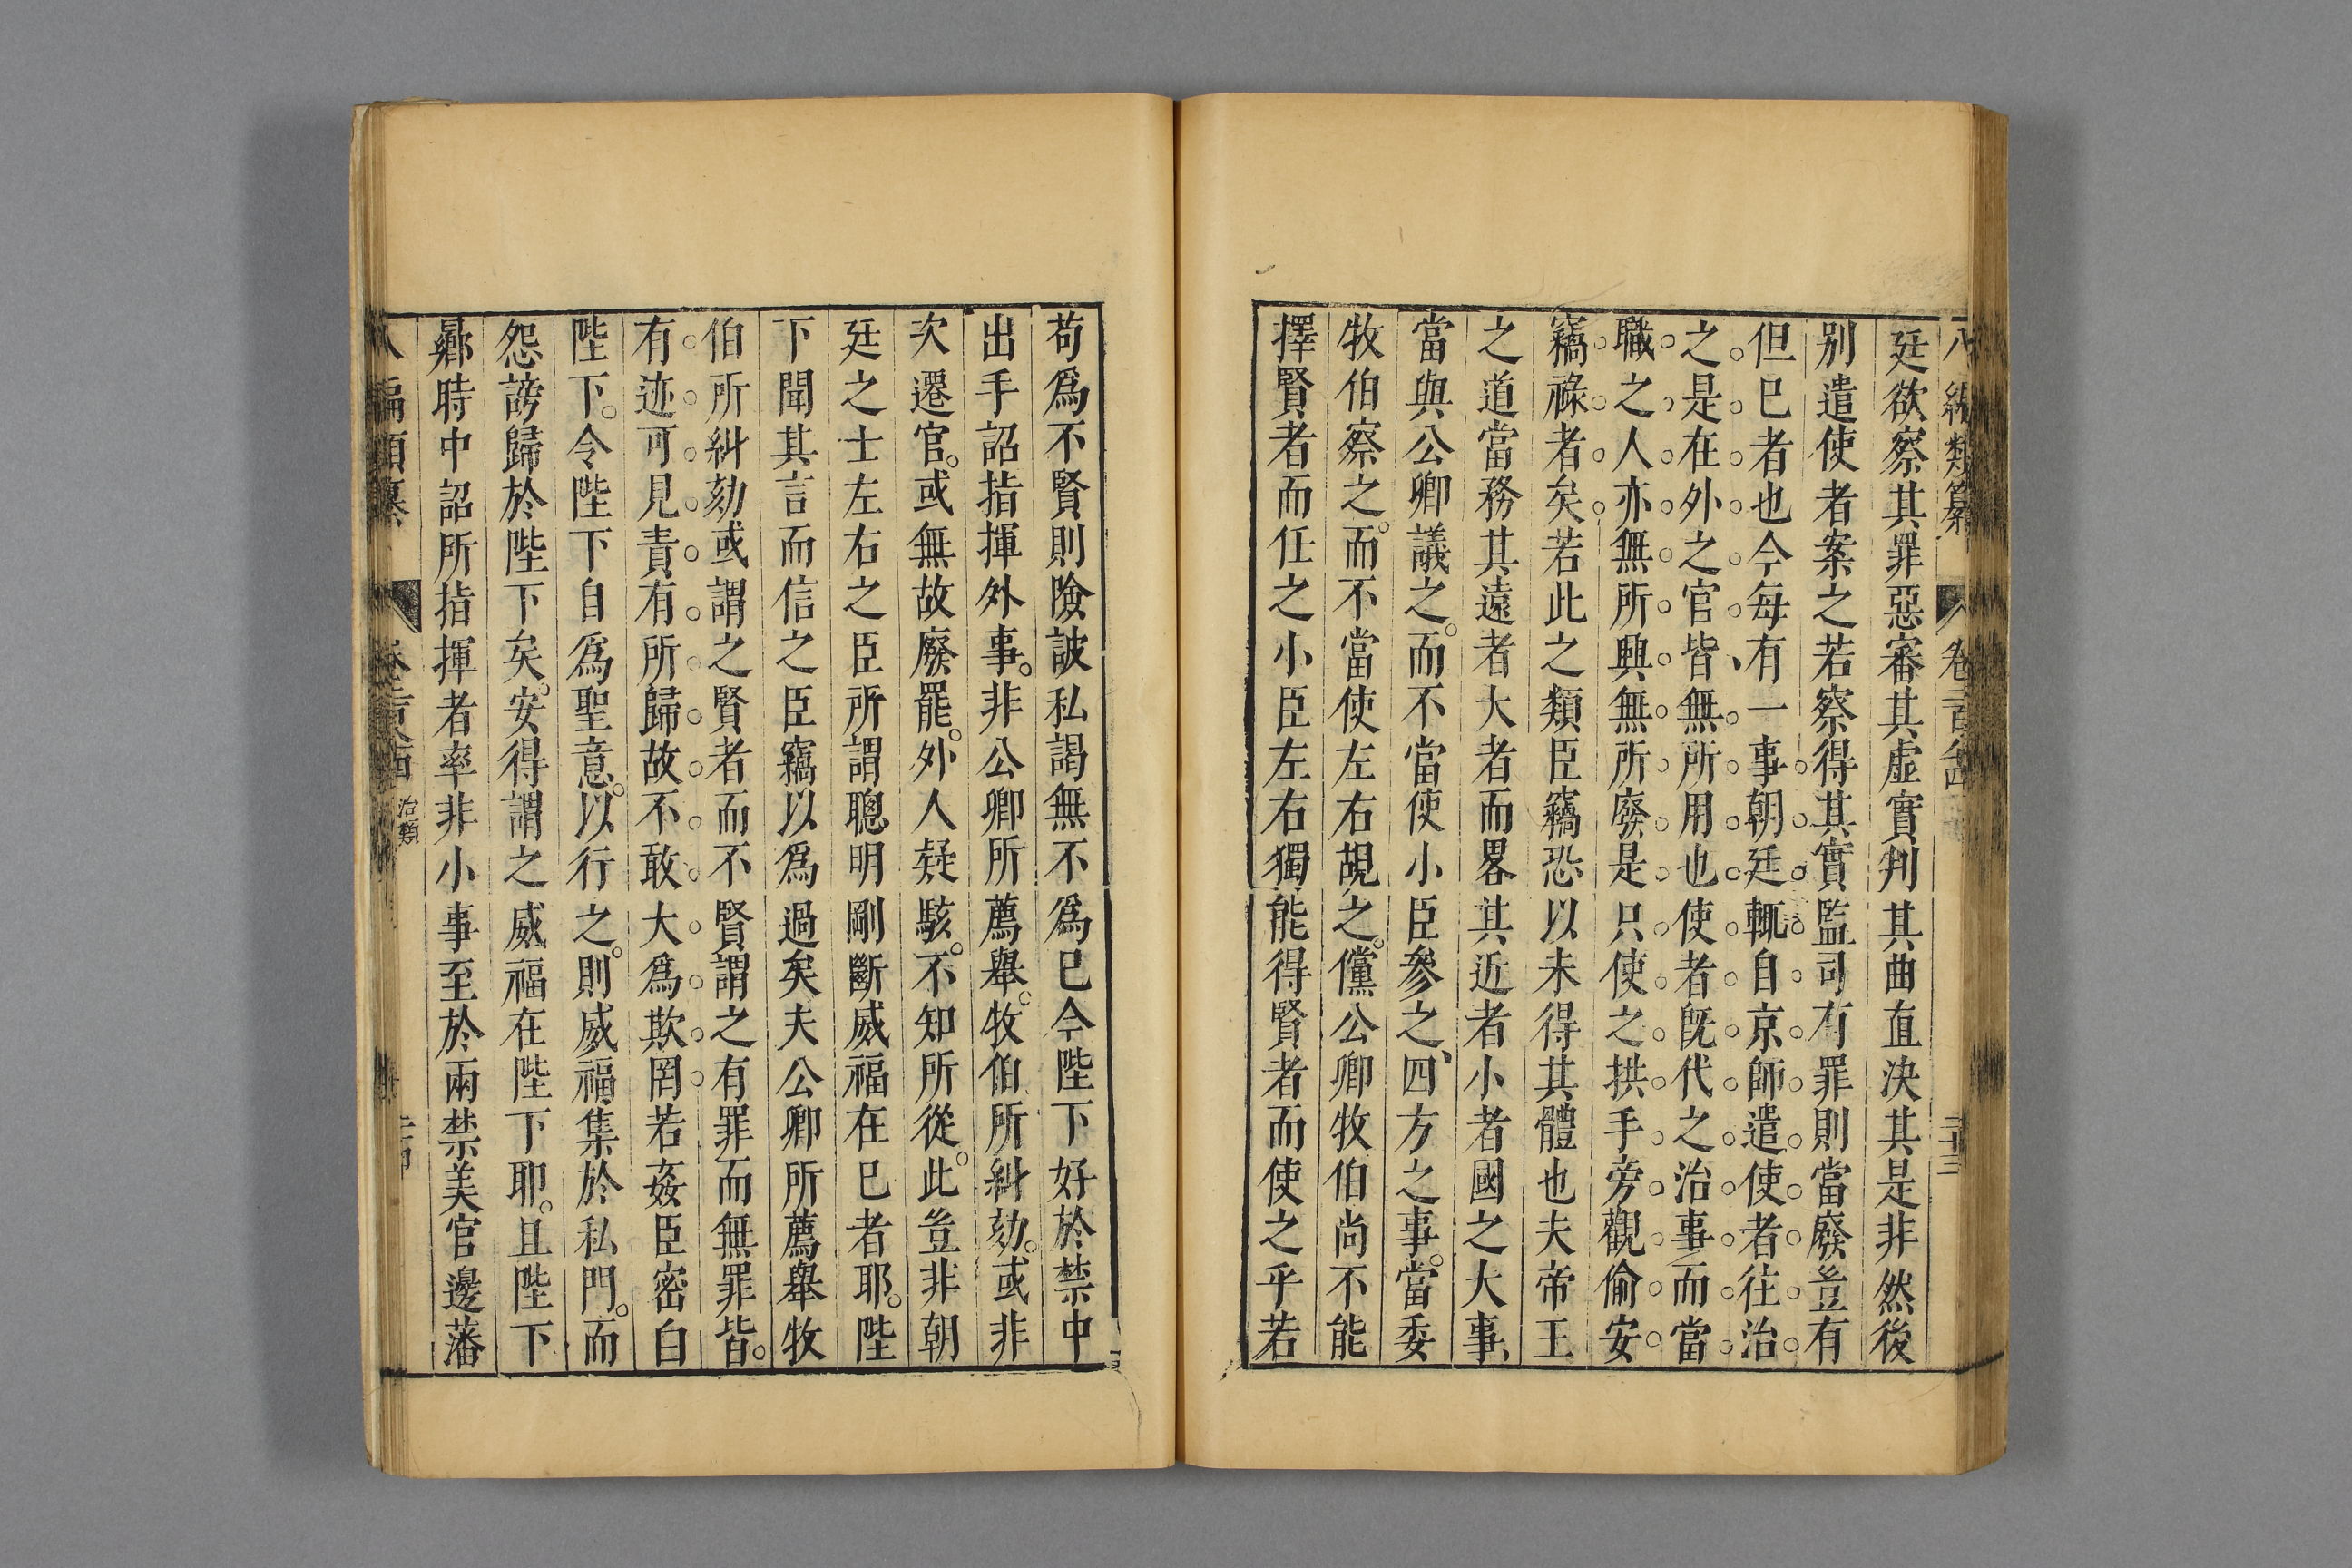 八編類纂 卷二百八四 二十三
廷欲察其罪惡審其虛實判其曲直決其是非然後
別遣使者案之若察得其實監司有罪則當廢豈有
但已者也今每有一事朝廷輒自京師遣使者往治
之是在外之官皆無所用也使者旣代之治事而當
職之人亦無所興無所廢是只使之拱手旁觀偷安
竊祿者矣若此之類臣竊恐以未得其體也夫帝王
之道當務其遠者大者而畧其近者小者國之大事
當與公卿議之而不當使小臣參之四方之事當委
牧伯察之而不當使左右覘之儻公卿牧伯尚不能
擇賢者而任之小臣左右獨能得賢者而使之乎若
苟爲不賢則險詖私謁無不爲已今陛下好於禁中
出手詔指揮外事非公卿所薦舉牧伯所糾劾或非
次遷官或無故廢罷外人疑駭不知所從此豈非朝
廷之士左右之臣所謂聰明剛斷威福在已者耶陛
下聞其言而信之臣竊以爲過矣夫公卿所薦舉牧
伯所糾劾或謂之賢者而不賢謂之有罪而無罪皆
有迹可見責有所歸故不敢大爲欺罔若姦臣密白
陛下令陛下自爲聖意以行之則威福集於私門而
怨謗歸於陛下矣安得謂之威福在陛下耶且陛下
曏時中詔所指揮者率非小事至於兩禁美官邊藩
八編類纂 治類